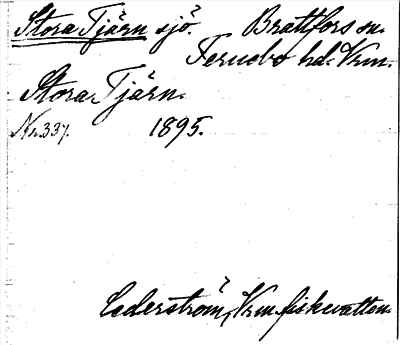 Stora Tjärn sjö. Brattfors sn.
Fernebo hd. Vrm.
Stora Tjärn.
Nr. 337. 1895.
Cederström, Vrm fiskvatten.